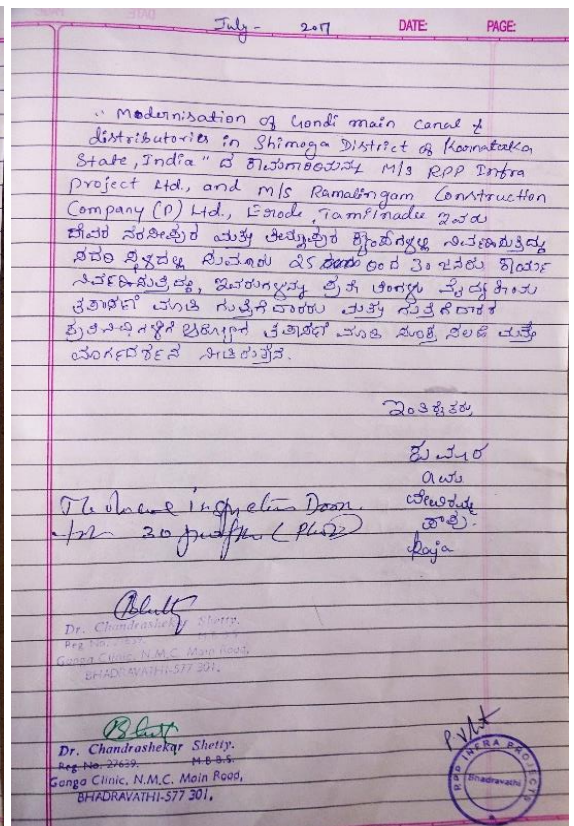 July - 2017 DATE: PAGE:
"Modernisation of Gondi main canal &
distributories in Shimoga District of Karnataka
State, India" ದ ಕಾಮಗಾರಿಯನ್ನು M/s RPP Infra
project Ltd., and M/s Ramalingam Construction
Company (P) Ltd., Erode, Tamilnadu ಇವರು
ಮತ್ತು ನಿರ್ವಹಿಸುತ್ತಿದ್ದು
ಸದರಿ ಸ್ಥಳದಲ್ಲಿ ಸುಮಾರು 25 ರಿಂದ 30 ಜನರು ಕಾರ್ಯ
ನಿರ್ವಹಿಸುತ್ತಿದ್ದು, ಇವರುಗಳನ್ನು ಪ್ರತಿ ತಿಂಗಳು ವೈದ್ಯಕೀಯ
ತಪಾಸಣೆ ಮಾಡಿ ಗುತ್ತಿಗೆದಾರರು ಮತ್ತು ಗುತ್ತಿಗೆದಾರರ
ಪ್ರತಿನಿಧಿಗಳಿಗೆ ಆರೋಗ್ಯ ತಪಾಸಣೆ ಮಾಡಿ ಸೂಕ್ತ ಸಲಹೆ ಮತ್ತು
ಮಾರ್ಗದರ್ಶನ ನೀಡಿರುತ್ತೇನೆ.
ಇಂತಿ
ಕುಮಾರ
Raja
30
Dr. Chandrashekar Shetty.
Reg No. 27639. M.B.B.S.
Ganga Clinic, N.M.C. Main Road,
BHADRAVATHI-577 301.
Dr. Chandrashekar Shetty.
Reg No. 27639. M.B.B.S.
Ganga Clinic, N.M.C. Main Road,
BHADRAVATHI-577 301.
RPP INFRA PROJECTS
Bhadravathi